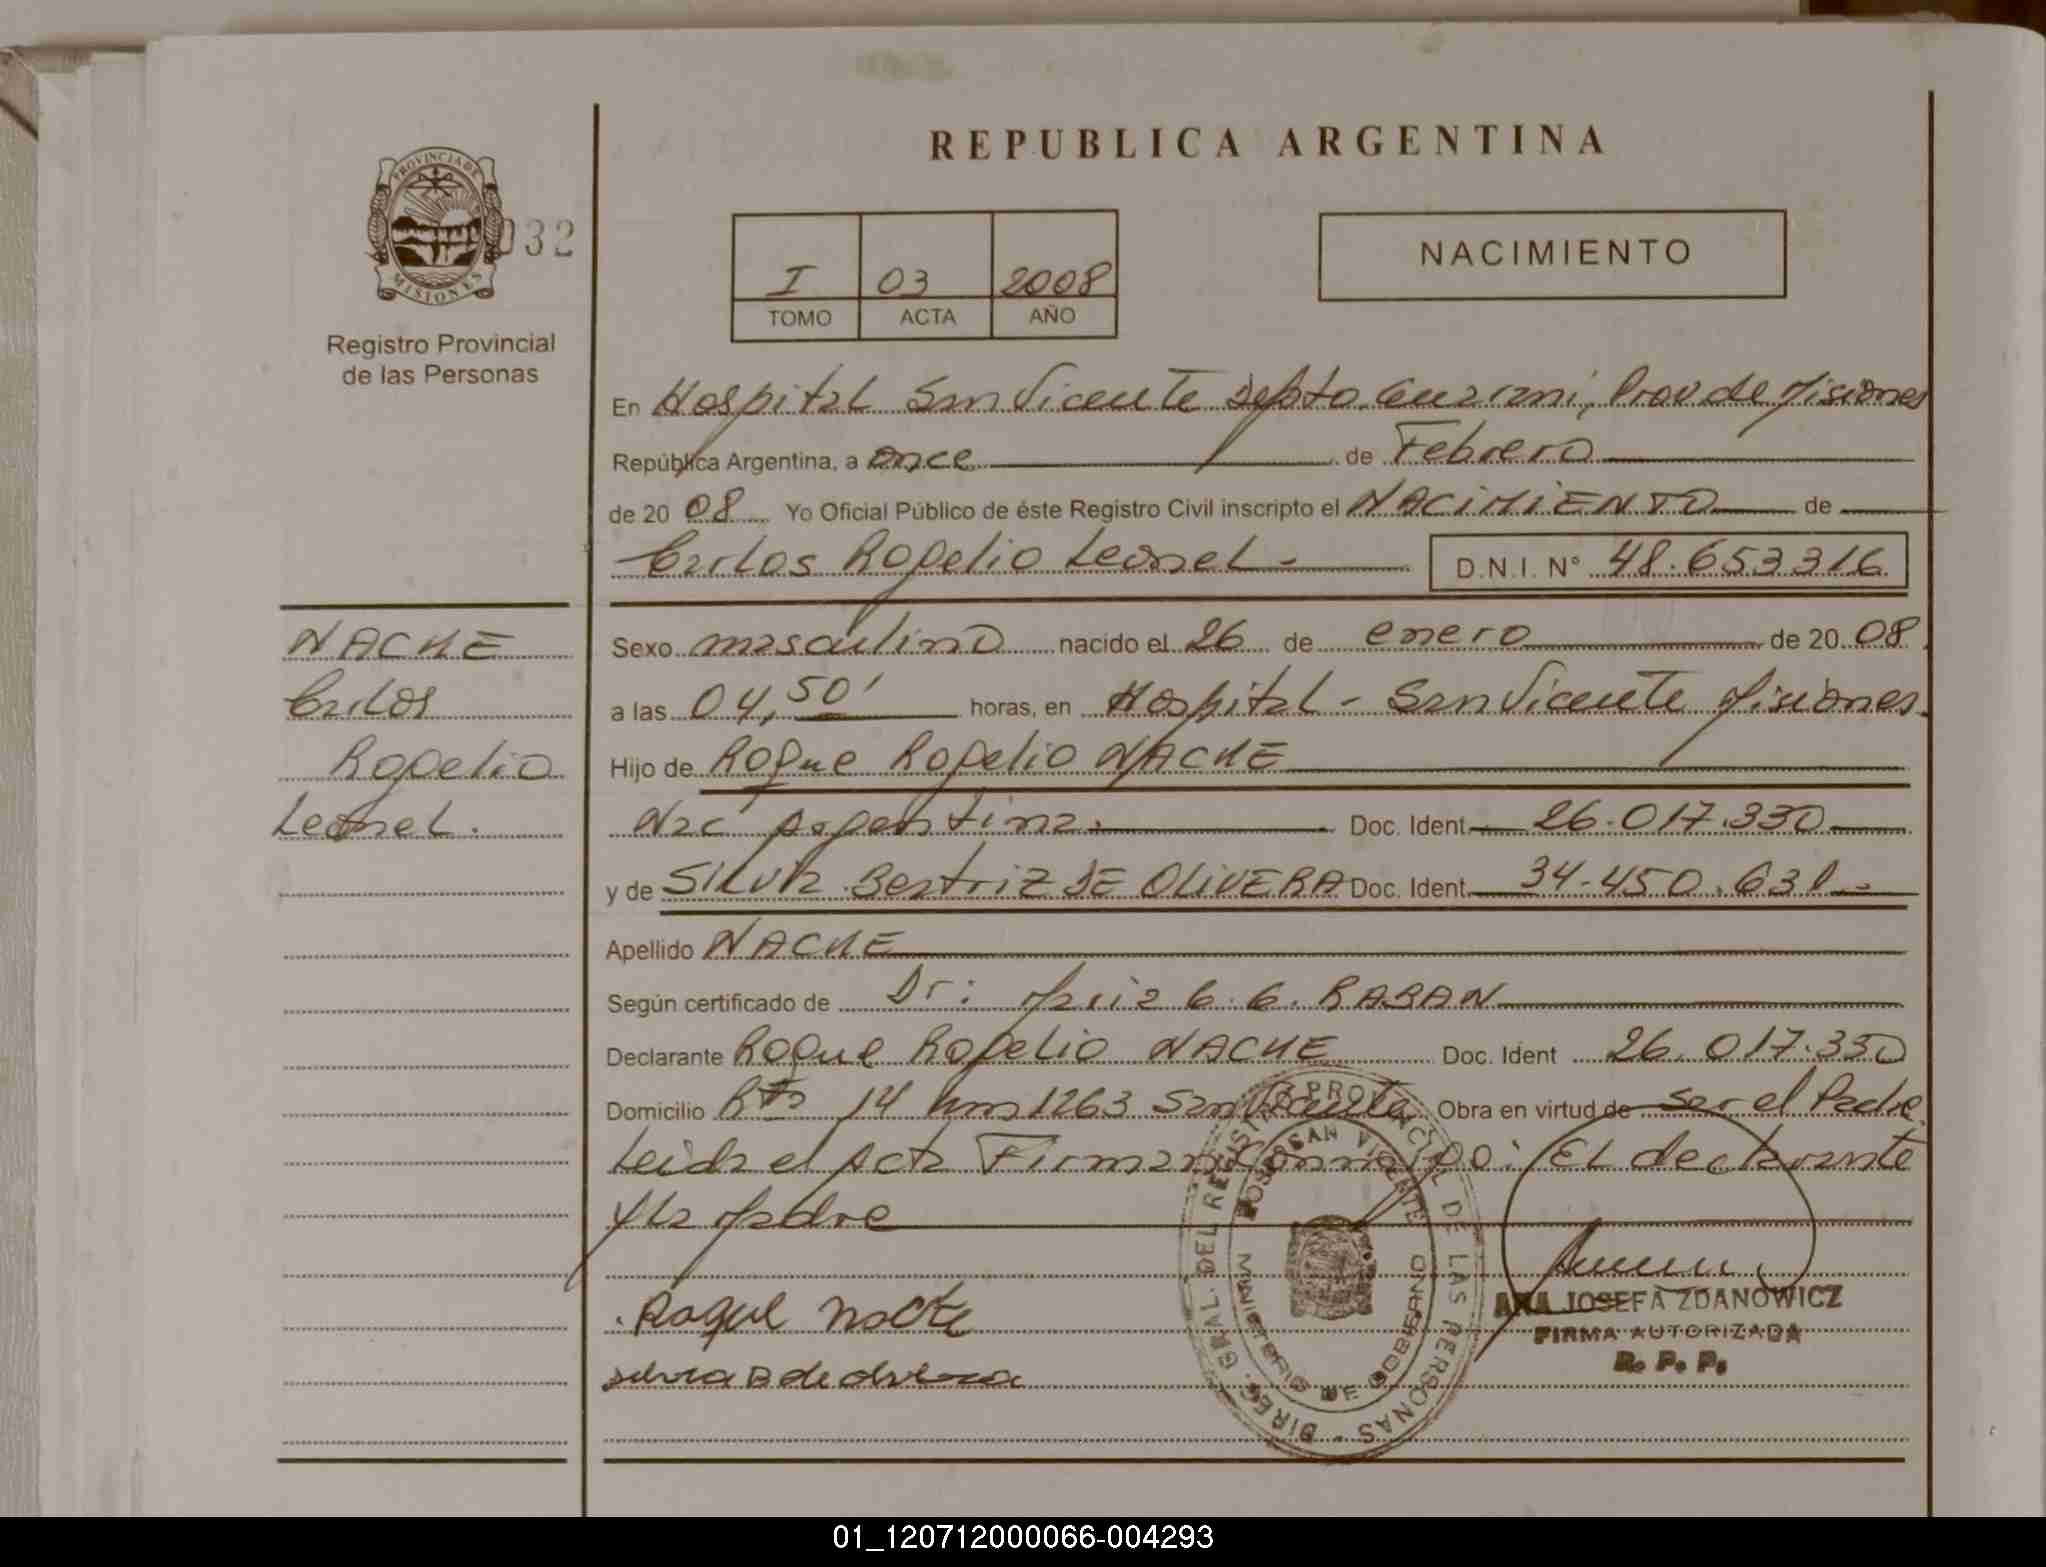 REPUBLICA ARGENTINA
PROVINCIA DE
MISIONES
032
Registro Provincial
de las Personas
I 03 2008
TOMO ACTA AÑO
NACIMIENTO
En Hospital San Vicente Depto. Guarani, Prov de Misiones
República Argentina, a once de Febrero
de 2008 Yo Oficial Público de éste Registro Civil inscripto el NACIMIENTO de
Carlos Rogelio Leonel - D.N.I. N° 48.653316
NACKE
Carlos
Rogelio
Leonel.
Sexo masculino nacido el 26 de enero de 2008
a las 04,50' horas, en Hospital - San Vicente Misiones.
Hijo de Roque Rogelio NACKE
Nac Argentina. Doc. Ident. 26.017.330
y de Silvia Beatriz DE OLIVERA Doc. Ident. 34-450.631.-
Apellido NACKE
Según certificado de Dr: Maria G. G. RABAN
Declarante Roque Rogelio NACKE Doc. Ident 26.017.330
Domicilio Rta 14 km 1263 San Vicente Obra en virtud de ser el Padre
Leida el Acta Firman conmigo: El declarante
y la Madre
DIREC. GRAL. DEL REGISTRO PROVINCIAL DE LAS PERSONAS -
HOSP. SAN VICENTE
MINISTERIO DE GOBIERNO
Roque Nacke
Silvia B de olivera
ANA JOSEFA ZDANOWICZ
FIRMA AUTORIZADA
R. P. P.
01_120712000066-004293